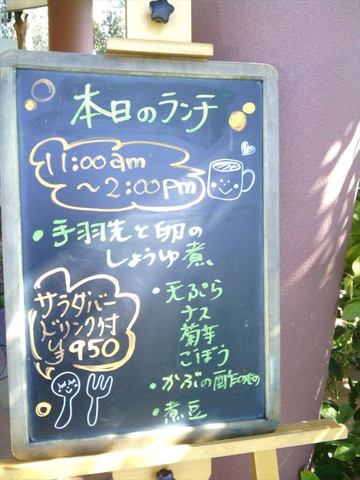 本日のランチ
11:00am
～2:00pm
・手羽先と卵の
しょうゆ煮
サラダバー
ドリンク付
￥950
・天ぷら
ナス
菊芋
ごぼう
・かぶの酢のもの
・煮豆